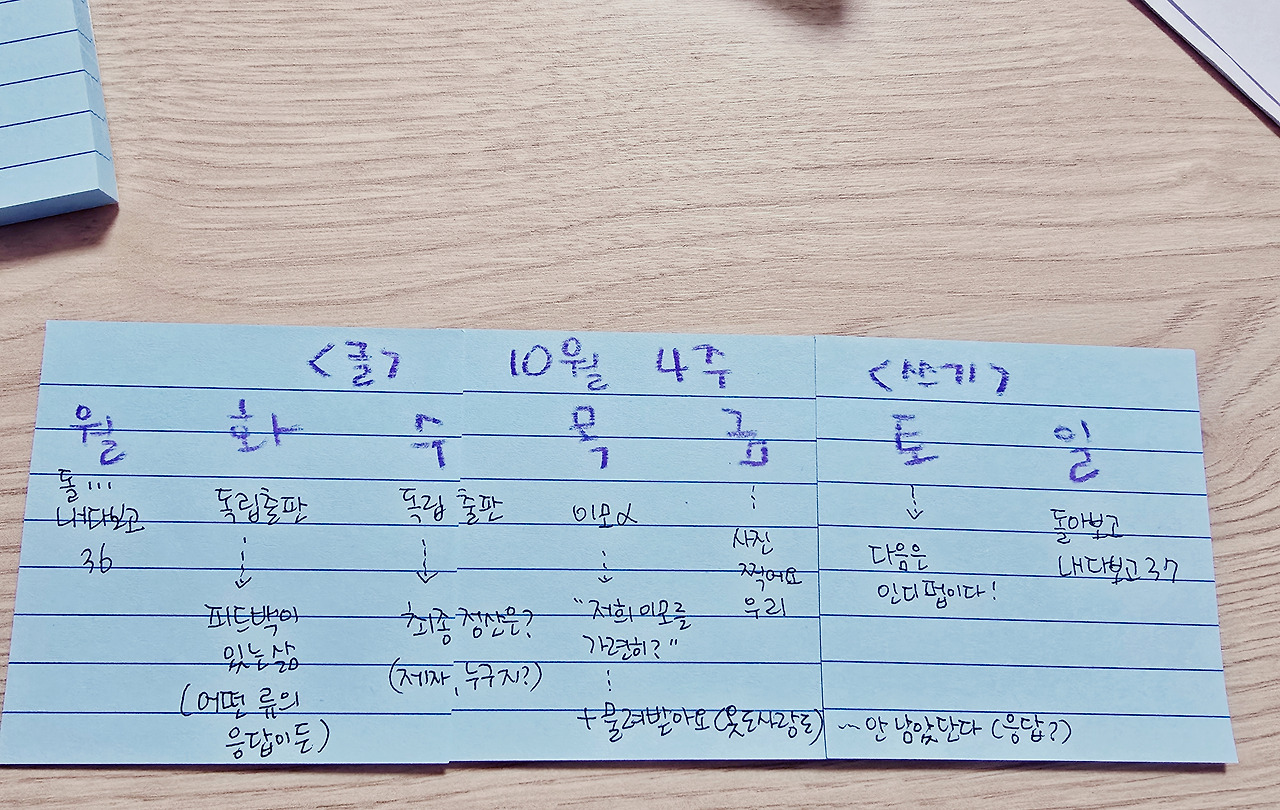 <글> 10월 4주 <쓰기>
월 화 수 목 금 토 일
돌...
내다보고
36
독립출판
피드백이
있는 삶
(어떤 류의
응답이든)
독립출판
최종 정산은?
(제자, 누구지?)
이모α
"저희 이모를
가련히?"
+ 물려받아요(옷도사랑도)
사진
찍어요
우리
다음은
인디펍이다!
~ 안 남았단다 (응답?)
돌아보고
내다보고37